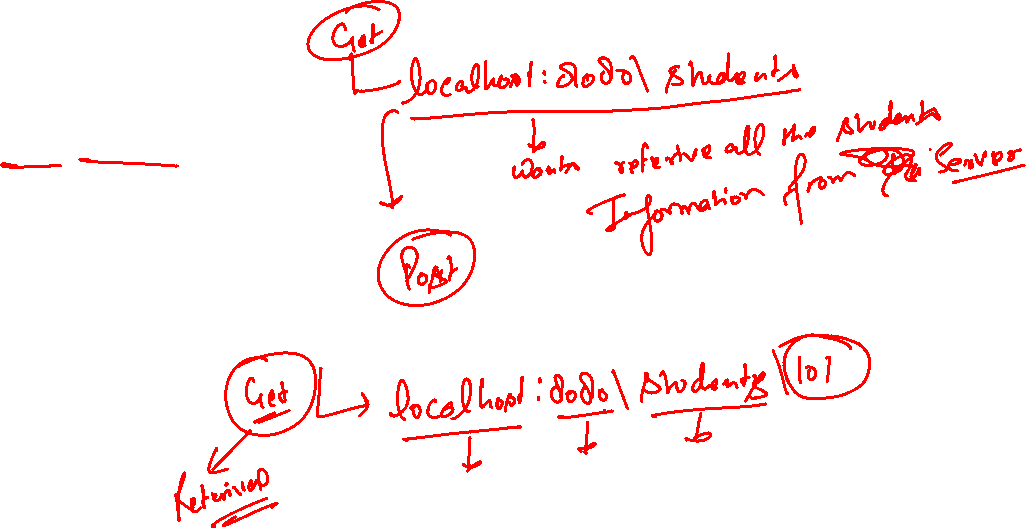 Get
localhost:8080\ students
Wants reterive all the students
Information from Server
Post
Get localhost:8080\ students\101